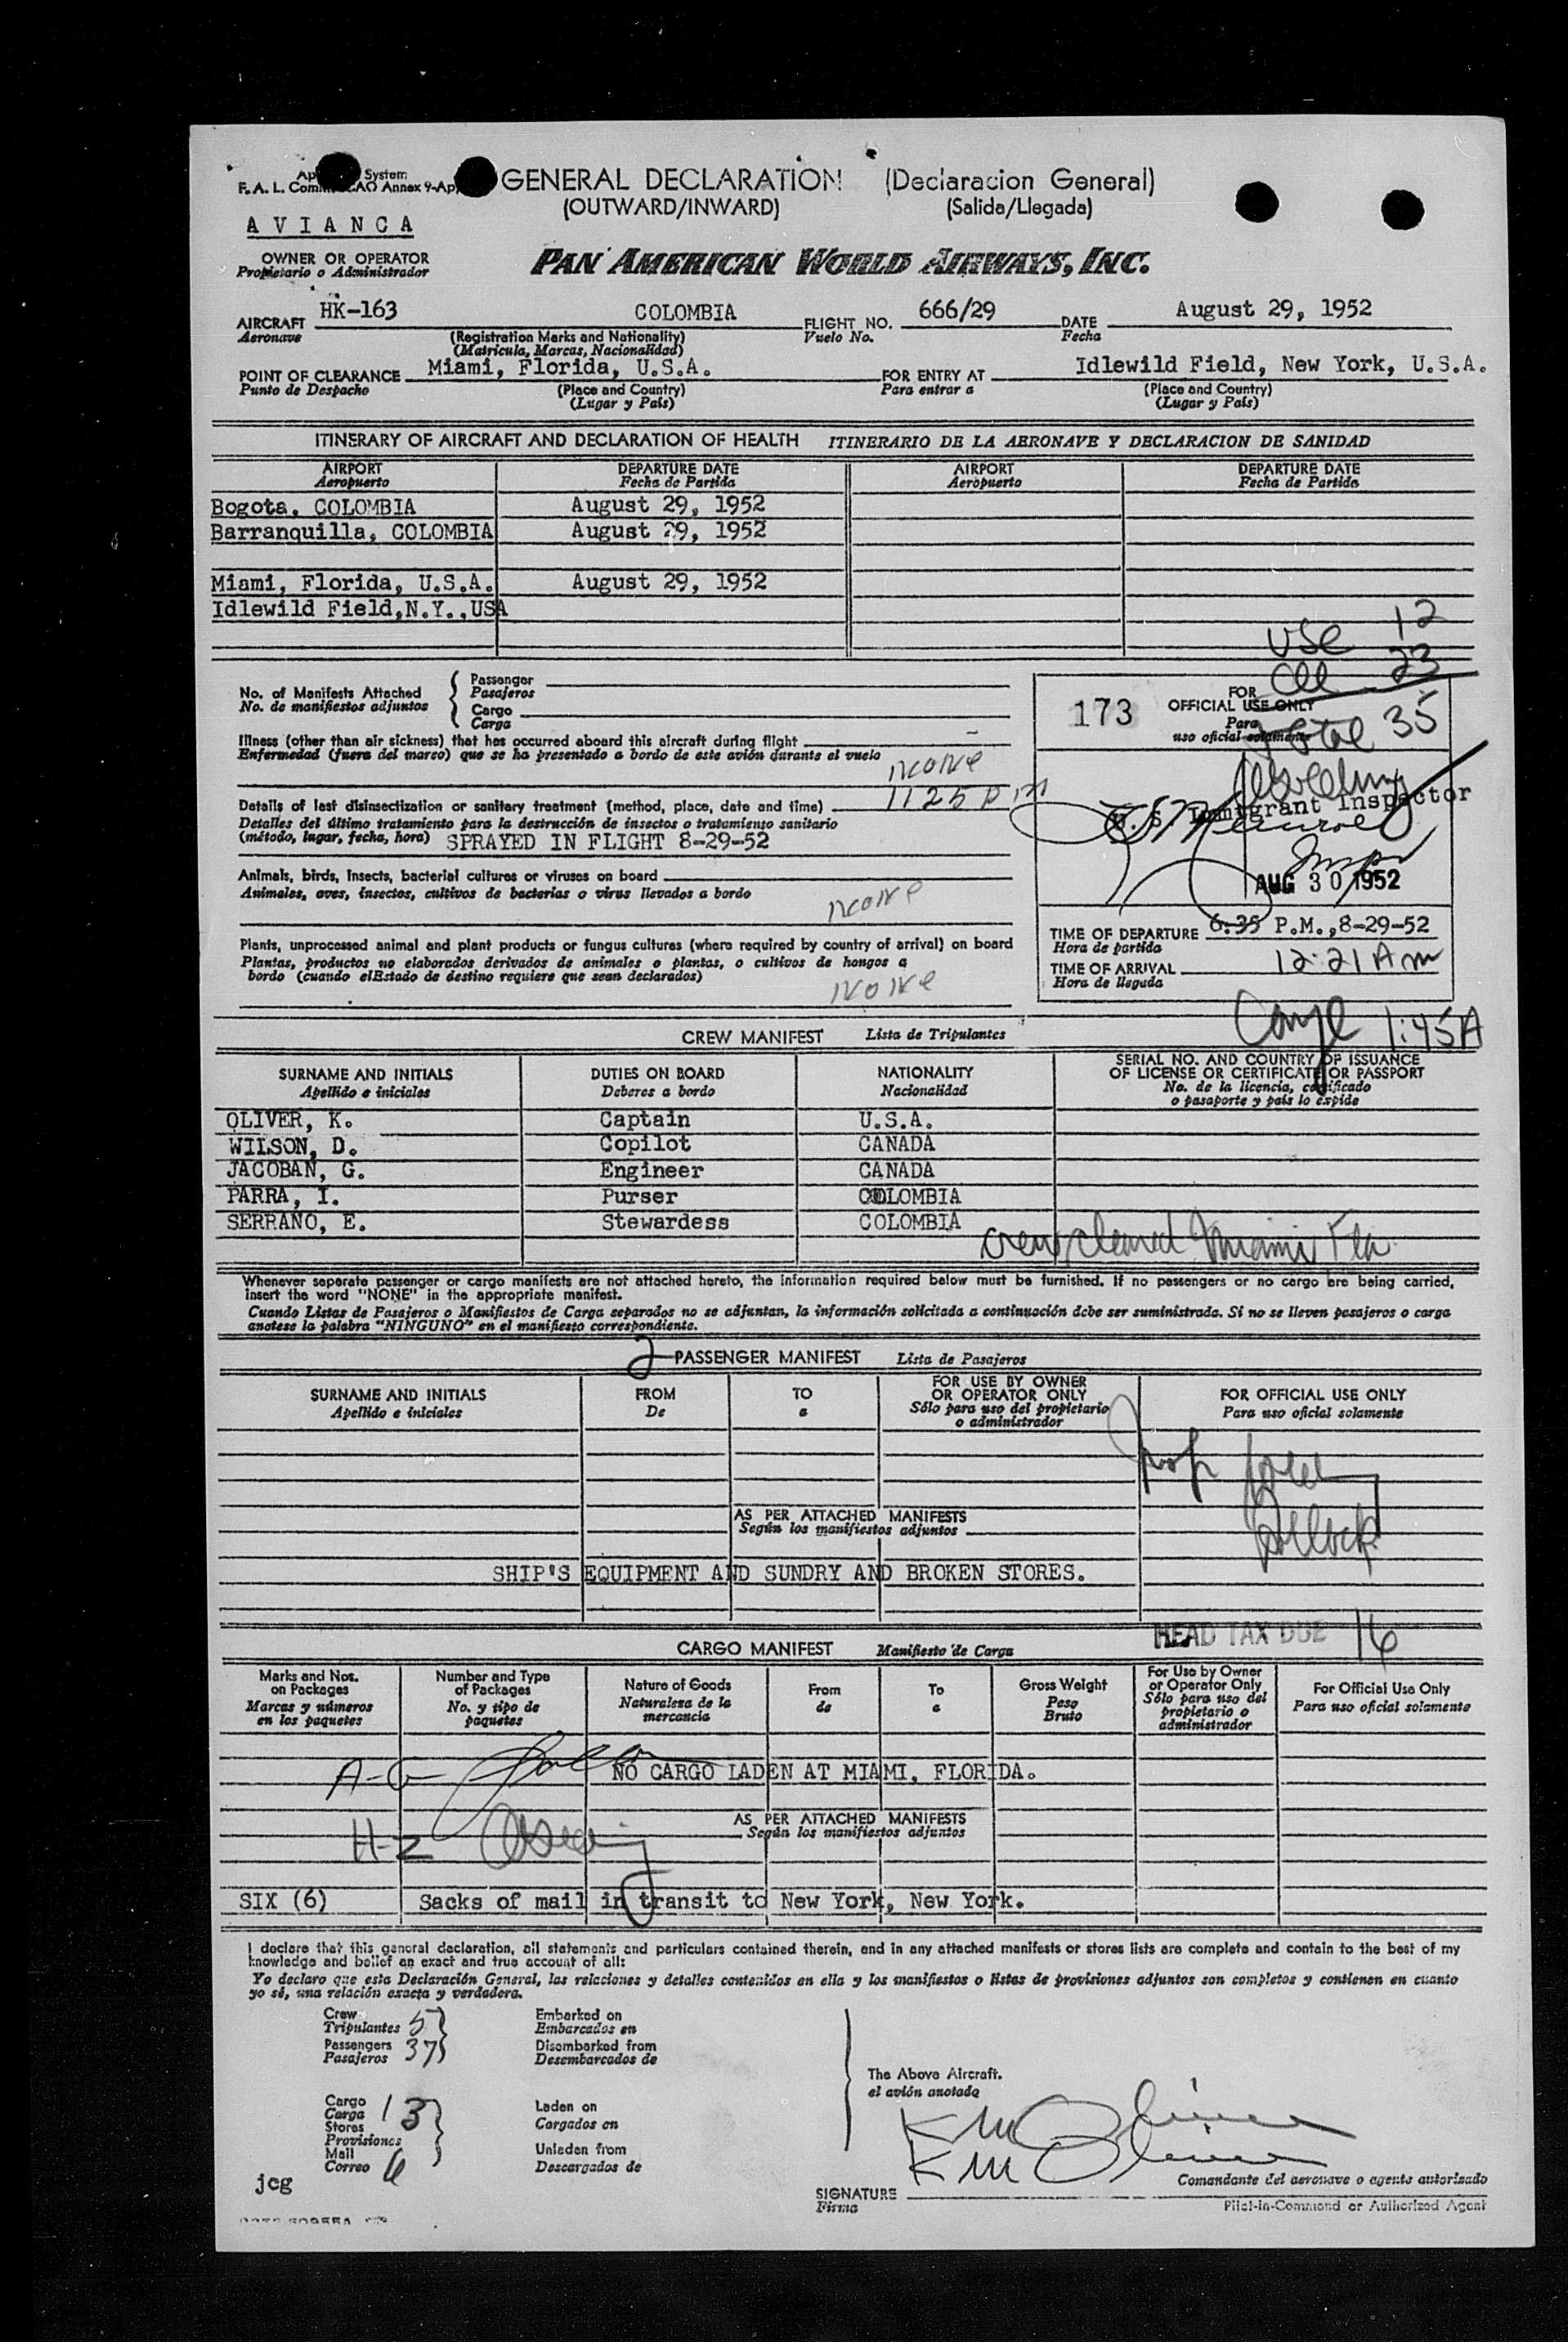 Ap System
F. A. L. Comm AO Annex 9-Ap
GENERAL DECLARATION (Declaracion General)
(OUTWARD/INWARD) (Salida/Llegada)
AVIANCA
OWNER OR OPERATOR
Propietario o Administrador
PAN AMERICAN WORLD AIRWAYS, INC.
AIRCRAFT HK-163 COLOMBIA FLIGHT NO. 666/29 DATE August 29, 1952
Aeronave (Registration Marks and Nationality) Vuelo No. Fecha
(Matricula, Marcas, Nacionalidad)
POINT OF CLEARANCE Miami, Florida, U.S.A. FOR ENTRY AT Idlewild Field, New York, U.S.A.
Punto de Despacho (Place and Country) Para entrar a (Place and Country)
(Lugar y País) (Lugar y País)
ITINERARY OF AIRCRAFT AND DECLARATION OF HEALTH ITINERARIO DE LA AERONAVE Y DECLARACION DE SANIDAD
AIRPORT DEPARTURE DATE AIRPORT DEPARTURE DATE
Aeropuerto Fecha de Partida Aeropuerto Fecha de Partida
Bogota, COLOMBIA August 29, 1952
Barranquilla, COLOMBIA August 29, 1952
Miami, Florida, U.S.A. August 29, 1952
Idlewild Field,N.Y.,USA
USC 12
23
Total 35
No. of Manifests Attached
No. de manifiestos adjuntos
Passenger
Pasajeros
Cargo
Carga
173
FOR
OFFICIAL USE ONLY
Para
uso oficial solamente
Illness (other than air sickness) that has occurred aboard this aircraft during flight
Enfermedad (fuera del mareo) que se ha presentado a bordo de este avión durante el vuelo
None
1125 pm
Details of last disinsectization or sanitary treatment (method, place, date and time)
Detalles del último tratamiento para la destrucción de insectos o tratamiento sanitario
(método, lugar, fecha, hora) SPRAYED IN FLIGHT 8-29-52
U. S. Immigrant Inspector
AUG 30 1952
Animals, birds, insects, bacterial cultures or viruses on board
Animales, aves, insectos, cultivos de bacterias o virus llevados a bordo
None
Plants, unprocessed animal and plant products or fungus cultures (where required by country of arrival) on board
Plantas, productos no elaborados derivados de animales o plantas, o cultivos de hongos a
bordo (cuando elEstado de destino requiere que sean declarados)
None
TIME OF DEPARTURE 6:35 P.M.,8-29-52
Hora de partida
TIME OF ARRIVAL 12:21 Am
Hora de llegada
1:45A
CREW MANIFEST Lista de Tripulantes
SURNAME AND INITIALS DUTIES ON BOARD NATIONALITY SERIAL NO. AND COUNTRY OF ISSUANCE
Apellido e iniciales Deberes a bordo Nacionalidad OF LICENSE OR CERTIFICATE OR PASSPORT
No. de la licencia, certificado
o pasaporte y país lo expide
OLIVER, K. Captain U.S.A.
WILSON, D. Copilot CANADA
JACOBAN, G. Engineer CANADA
PARRA, I. Purser COLOMBIA
SERRANO, E. Stewardess COLOMBIA
crew cleared Miami Fla
Whenever separate passenger or cargo manifests are not attached hereto, the information required below must be furnished. If no passengers or no cargo are being carried,
insert the word "NONE" in the appropriate manifest.
Cuando Listas de Pasajeros o Manifiestos de Carga separados no se adjuntan, la información solicitada a continuación debe ser suministrada. Si no se lleven pasajeros o carga
anotese la palabra "NINGUNO" en el manifiesto correspondiente.
2 PASSENGER MANIFEST Lista de Pasajeros
SURNAME AND INITIALS FROM TO FOR USE BY OWNER FOR OFFICIAL USE ONLY
Apellido e iniciales De a OR OPERATOR ONLY Para uso oficial solamente
Sólo para uso del propietario
o administrador
AS PER ATTACHED MANIFESTS
Según los manifiestos adjuntos
SHIP'S EQUIPMENT AND SUNDRY AND BROKEN STORES.
HEAD TAX DUE 16
CARGO MANIFEST Manifiesto de Carga
Marks and Nos. on Packages
Marcas y números en los paquetes
Number and Type of Packages
No. y tipo de paquetes
Nature of Goods
Naturaleza de la mercancia
From
de
To
a
Gross Weight
Peso Bruto
For Use by Owner or Operator Only
Sólo para uso del propietario o administrador
For Official Use Only
Para uso oficial solamente
A-G
NO CARGO LADEN AT MIAMI, FLORIDA.
AS PER ATTACHED MANIFESTS
Según los manifiestos adjuntos
H-Z
SIX (6) Sacks of mail in transit to New York, New York.
I declare that this general declaration, all statements and particulars contained therein, and in any attached manifests or stores lists are complete and contain to the best of my
knowledge and belief an exact and true account of all:
Yo declaro que esta Declaración General, las relaciones y detalles contenidos en ella y los manifiestos o listas de provisiones adjuntos son completos y contienen en cuanto
yo sé, una relación exacta y verdadera.
Crew
Tripulantes 5
Passengers
Pasajeros 37
Embarked on
Embarcados en
Disembarked from
Desembarcados de
The Above Aircraft.
el avión anotado
Cargo
Carga 13
Stores
Provisiones
Mail
Correo 6
Laden on
Cargados en
Unladen from
Descargados de
KM Oliver
KM Oliver
jcg
SIGNATURE
Firma
Comandante del aeronave o agente autorizado
Pilot-in-Command or Authorized Agent